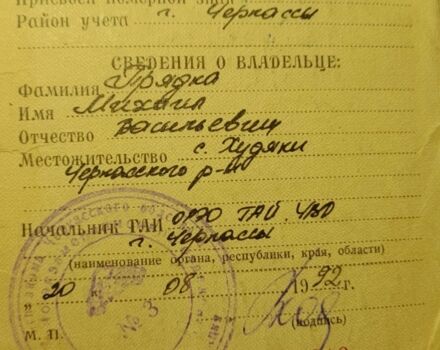 Присвоен номерной знак
Район учета г. Черкассы
СВЕДЕНИЯ О ВЛАДЕЛЬЦЕ:
Фамилия Прядка
Имя Михаил
Отчество Васильевич
Местожительство с. Худяки
Черкасского р-н
Начальник ГАИ ОРЭО ГАИ
г. Черкассы
(наименование органа, республики, края, области)
20 08 1992 г.
М. П. (подпись)
№ 3